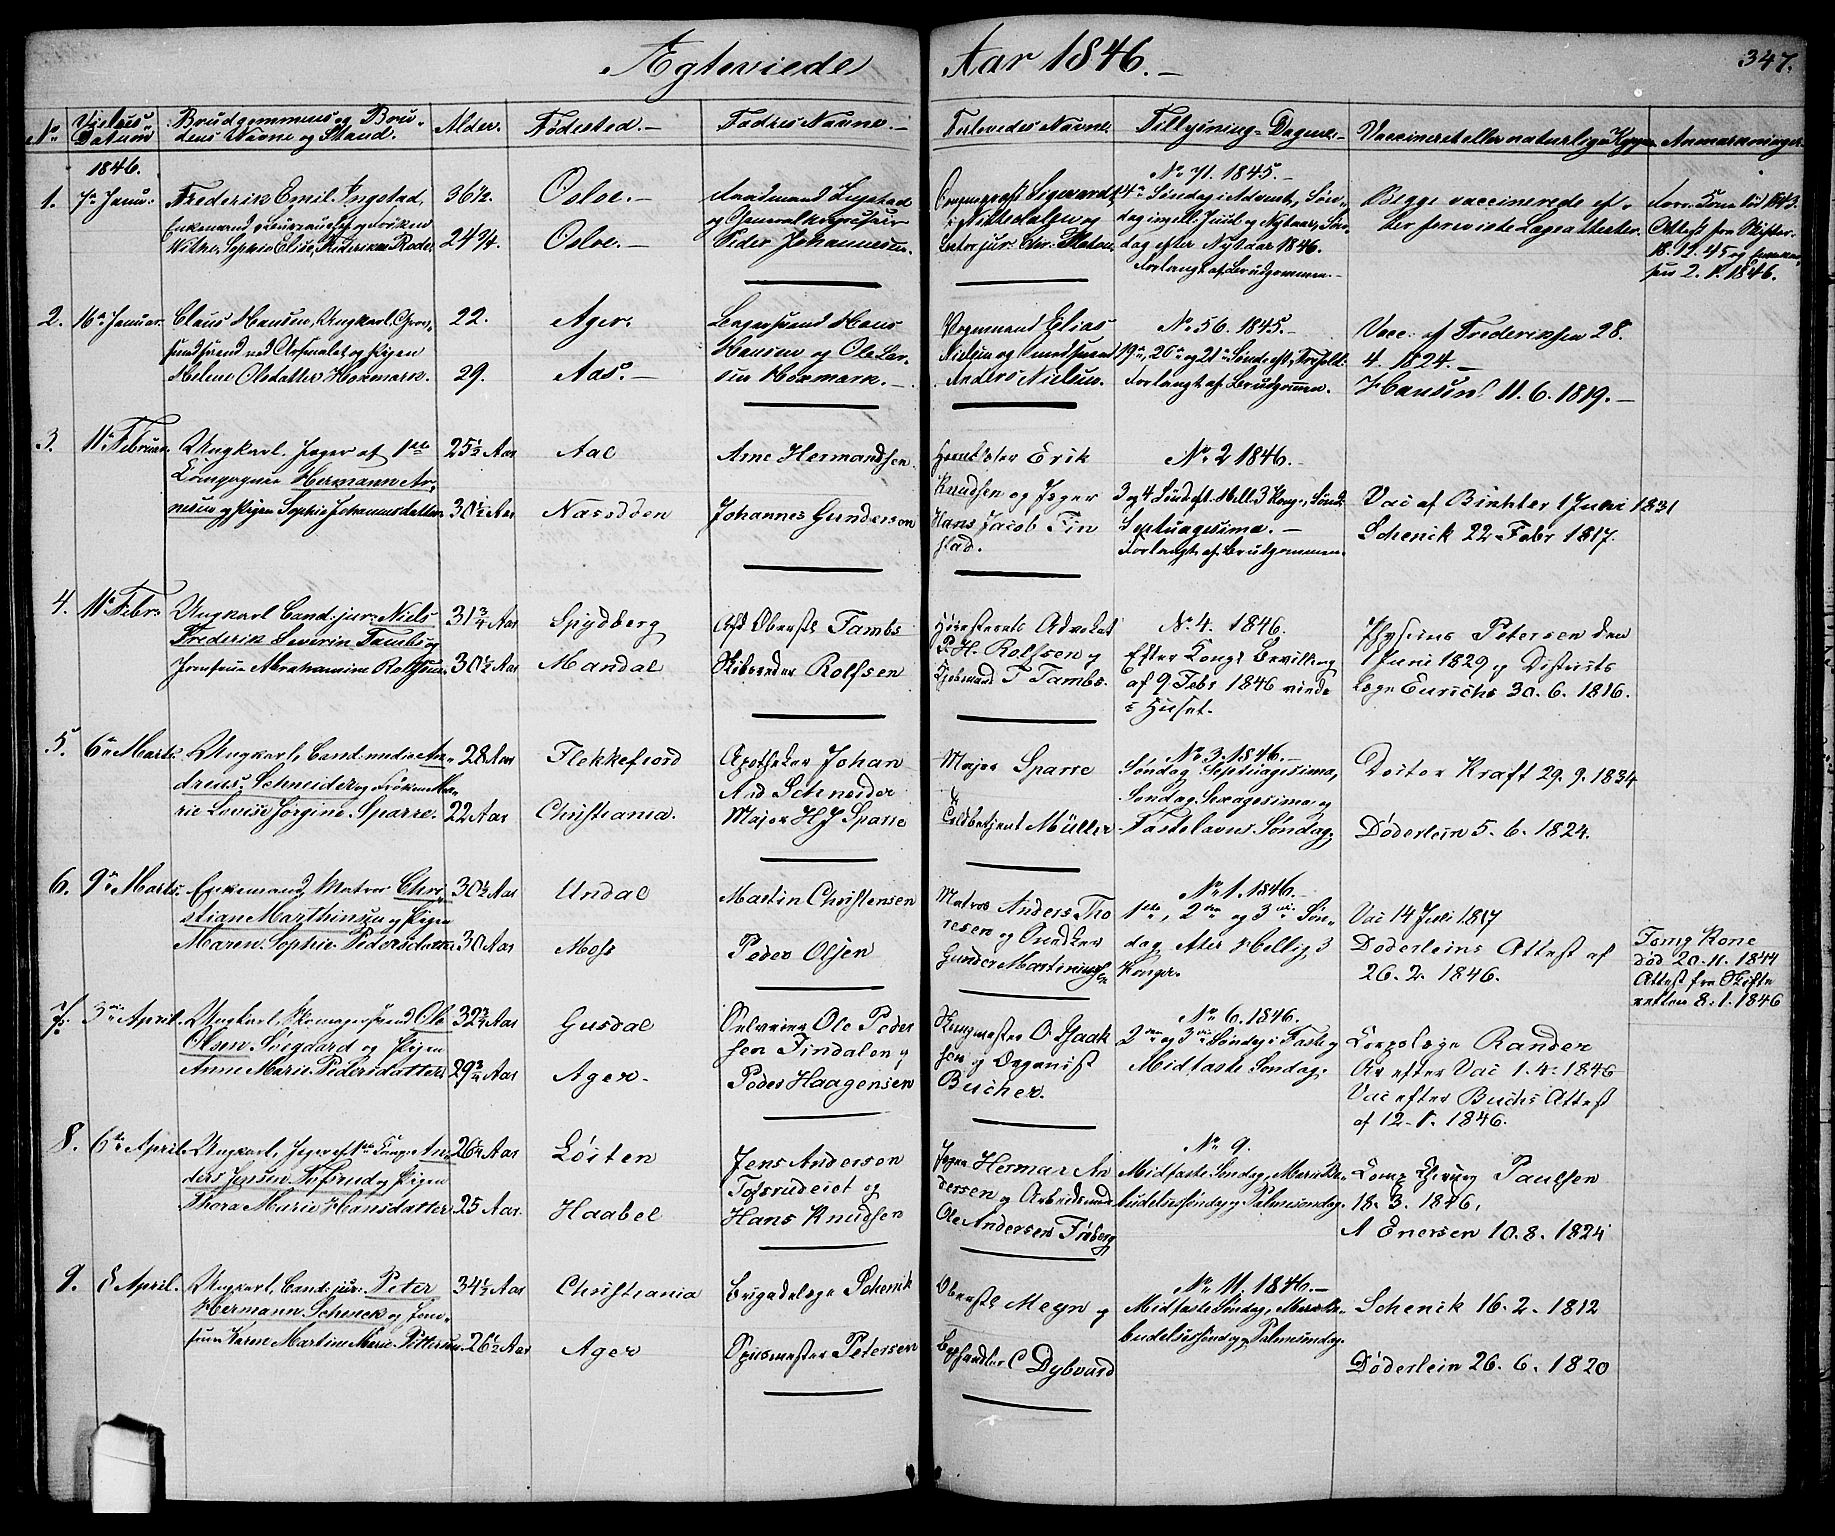 Ægteviede Aar 1846.
347.
No
Vielses Datum
Brudgommens og Brudens Navne og Stand.
Alder.
Fødested.
Fædres Navne.
Forlovedes Navne.
Tillysnings-Dagene.
Vaccineret eller naturlige Kopper
Anmærkninger
1846.
1.
7de Janu:
Frederik Emil Ingstad,
Enkemand
36 1/2.
Osloe.
24 3/4.
Osloe.
No 71. 1845.
4de Søndag i Advent, Søn-
dag imell: Juul og Nytaar, Søn-
dag efter Nytaar 1846.
Forlangt af Brudgommen.
Begge vaccinerede ef-
ter foreviste Lægeattester.
2. 1. 1846.
2.
16de Januar.
Claus Hansen, Ungkarl,
og Pigen
Helene Olsdatter Hoxmark.
22.
29.
Ager.
Aas.
Hans
Hansen og Ole Lar-
sen Hoxmark.
Vognmand Elias
Nielsen og
Anders Nielsen.
No 56. 1845.
19de, 20de og 21de Sønd: eft: Trefold:
Forlangt af Brudgommen.
Vacc. af Frederiksen 28.
4. 1824.
Hansen 11. 6. 1819.
3.
11te Februar.
Ungkarl, Jæger af 1ste
Compagnie Hermann Ar-
nesen og Pigen Sophie Johannesdatter
25 1/3 Aar
30 1/2 Aar
Aal
Næsodden
Arne Hermandsen.
Johannes Gundersen
Erik
Knudsen og Jæger
Hans Jacob Fin
stad.
No 2 1846.
3 og 4 Sønd eft. Hell. 3 Kong., Sønd.
Septuagesima.
Forlangt af Brudgommen.
Vac af Richter 1 Juni 1831
Schenik 22 Febr 1817.
4.
11te Febr.
Ungkarl Cand: jur: Niels
Frederik Severin Tambs og
Jomfrue Abrahamine Rolfsen
31 3/4 Aar
30 1/2 Aar
Spydberg
Mandal
Afd Oberstl Tambs
Skibsreder Rolfsen
Høiesterets Advokat
P. H. Rolfsen og
Kjøbmand T Tambs.
No 4. 1846.
Efter Kongl Bevilling
af 9 Febr 1846 viede
i Huset.
Physicus Petersen den
1 Juni 1829 og Districts
Læge Eurichs 30. 6. 1816.
5.
6te Marts.
Ungkarl, Cand: medic: An-
dreas Schneider og Frøken Ma-
rie Lovise Jørgine Sparre.
28 Aar
22 Aar
Flekkefiord
Christiania.
Apotheker Johan
And Schneider
Major H J Sparre
Major Sparre
&
Toldbetjent Müller
No 3. 1846.
Søndag Septuagesima,
Søndag Sexagesima og
Fastelavns Søndag.
Doctor Kraft 29. 9. 1834
Døderlein 5. 6. 1824.
6.
9de Marts.
Enkemand, Matros Chri-
stian Marthinsen og Pigen
Maren Sophie Pedersdatter
30 1/2 Aar
30 Aar
Undal
Moss
Martin Christensen
Peder Olsen
Matros Anders Tho
resen og Snedker
Gunder Martiniussen
No 1. 1846.
1ste, 2den og 3die Søn-
dag efter Hellig 3
Konger.
Vac 14 Juli 1817
Døderleins Attest af
26. 2. 1846.
Forrig Kone
død 20. 11. 1844
Attest fra Skifte
retten 8. 1. 1846
7.
3die April.
Ungkarl, Skomagersvend Ole
Olsen Svegaard og Pigen
Anne Marie Pedersdatter
32 3/4 Aar
29 3/4 Aar
Gusdal
Ager.
Selveier Ole Peder
sen Findalen og
Peder Haagensen
O. Isaak
sen og Organist
Bucher.
No 6. 1846.
2den og 3die Søndag i Faste og
Midfaste Søndag.
Corpslæge Rander
Ar efter Vac 1. 4. 1846
Vac efter Buchs Attest
af 12. 1. 1846.
8.
6te April.
Ungkarl, Jæger af 1ste Comp: An-
ders Jensen Tofsrud og Pigen
Thora Marie Hansdatter
26 1/4 Aar
25 Aar
Løiten
Haabel
Jens Andersen
Tofsrudeiet og
Hans Knudsen
Jæger Herman An
dersen og Arbeidsmand
Ole Andersen Frøberg
No 9.
Midfaste Søndag, Mariæ Be-
budelsessøndag og Palmesøndag.
Comp Chirurg Paulsen
18. 3. 1846.
A Enersen 10. 8. 1824
9.
8 April.
Ungkarl, Cand: jur: Peter
Hermann Schenck og Jom-
frue Karen Martine Marie Pettersen
34 1/2 Aar
26 1/2 Aar
Christiania
Ager
Brigadelæge Schenik
Spiismester Petersen
Oberstl Meyn og
C Dybvard
No 11. 1846.
Midfaste Søndag, Mariæ Be-
budelsessøndag og Palmesøndag.
Schenik 16. 2. 1812
Døderlein 26. 6. 1820